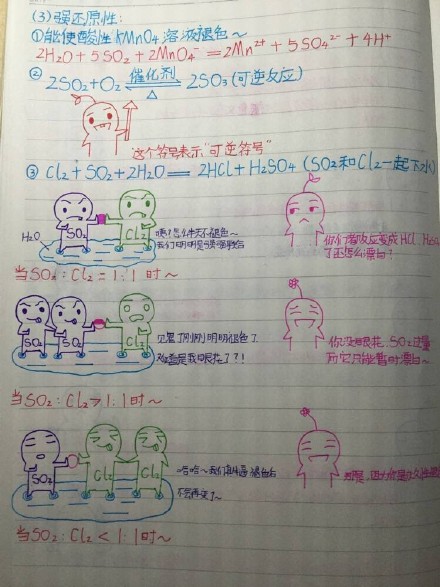 (3)强还原性:
①能使酸性KMnO₄溶液褪色~
2H₂O+5SO₂+2MnO₄⁻=2Mn²⁺+5SO₄²⁻+4H⁺
②2SO₂+O₂ 催化剂 ⇌ △ 2SO₃(可逆反应)
这个符号表示"可逆符号"
③Cl₂+SO₂+2H₂O=2HCl+H₂SO₄(SO₂和Cl₂一起下水)
H₂O
SO₂
Cl₂
我们明明是强强联合
你们俩反应变成HCl、H₂SO₄
了还怎么漂白?
当SO₂:Cl₂=1:1时~
SO₂
SO₂
Cl₂
刚刚明明褪色了
难道是我眼花了?!
你没眼花,SO₂过量
所它只能暂时漂白~
当SO₂:Cl₂>1:1时~
SO₂
Cl₂
Cl₂
哈哈~我们
褪色后
不会再变了~
当SO₂:Cl₂<1:1时~